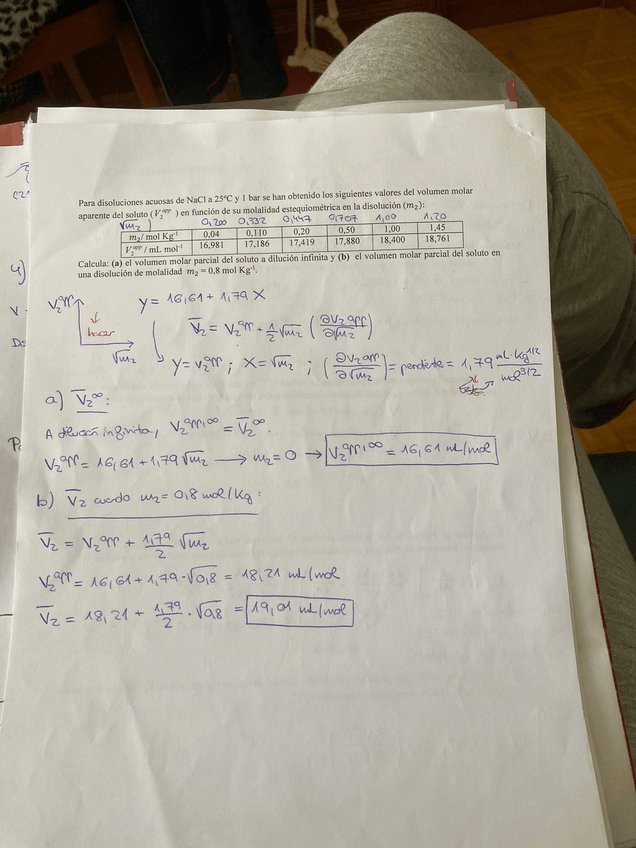 Para disoluciones acuosas de NaCl a 25ºC y 1 bar se han obtenido los siguientes valores del volumen molar
aparente del soluto (V₂ᵃᵖᵖ) en función de su molalidad estequiométrica en la disolución (m₂):
√m₂ ) 0,200 0,332 0,447 0,707 1,00 1,20
m₂/ mol Kg⁻¹ 0,04 0,110 0,20 0,50 1,00 1,45
V₂ᵃᵖᵖ / mL mol⁻¹ 16,981 17,186 17,419 17,880 18,400 18,761
Calcula: (a) el volumen molar parcial del soluto a dilución infinita y (b) el volumen molar parcial del soluto en
una disolución de molalidad m₂ = 0,8 mol Kg⁻¹.
4)
V₂ᵃᵖᵖ ↑
↓
hacer
√m₂
y = 16,61 + 1,79 X
V̄₂ = V₂ᵃᵖᵖ + 1/2 √m₂ (∂V₂ᵃᵖᵖ/∂√m₂)
y = V₂ᵃᵖᵖ ; X = √m₂ ; (∂V₂ᵃᵖᵖ/∂√m₂) = pendiente = 1,79 mL·Kg^1/2 / mol^3/2
a) V̄₂^∞ :
A dilución infinita, V₂ᵃᵖᵖ,^∞ = V̄₂^∞.
V₂ᵃᵖᵖ = 16,61 + 1,79 √m₂ → m₂ = 0 → V₂ᵃᵖᵖ,^∞ = 16,61 mL/mol
b) V̄₂ cuando m₂ = 0,8 mol/Kg :
V̄₂ = V₂ᵃᵖᵖ + 1,79/2 √m₂
V₂ᵃᵖᵖ = 16,61 + 1,79 · √0,8 = 18,21 mL/mol
V̄₂ = 18,21 + 1,79/2 · √0,8 = 19,01 mL/mol